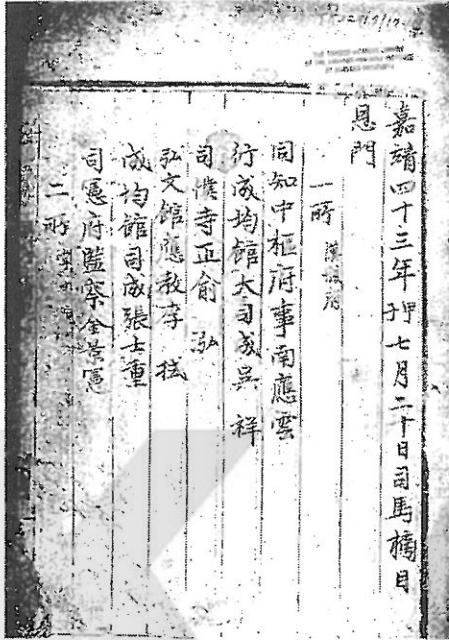 嘉靖四十三年甲子七月二十日司馬榜目
恩門
一所 漢城府
同知中樞府事南應雲
行成均館大司成吳祥
司僕寺正俞泓
弘文館應教李拭
成均館司成張士重
司憲府監察金景憲
二所